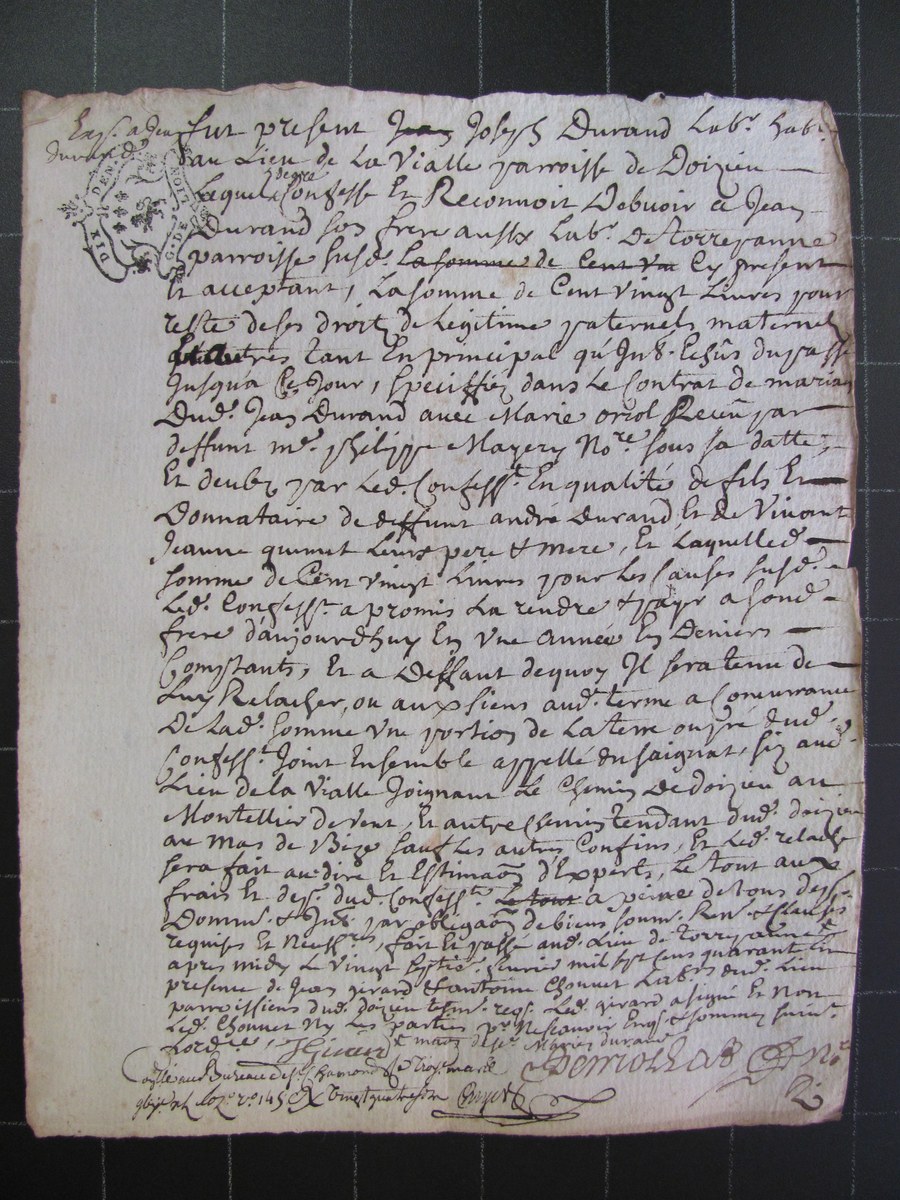 Exp. a Jean
durand d.
DIX DEN. G. DE LION
fut present Jean Joseph Durand Lab.r hab.t
au Lieu de La Vialle parroisse de Doizieu
Lequel de gre Confesse Et Reconnoit Debuoir a Jean
Durand son frere aussy Lab.r de torrepanne
parroisse susd. La somme de Cent vin Cy present
Et acceptant, La somme de Cent vingt Livres pour
reste de ses droits de Legitime paternels maternels
et autres tant En principal qu'Int. Echûs du passé
Jusqua Ce Jour, speciffiéz dans Le Contrat de mariage
Dud. Jean Durand avec Marie oriol Receu par
deffunt m.e philippe Mayery No.re sous sa datte,
Et deubz par Led. Confess.t En qualité de fils Et
Donnataire de deffunt andré Durand Et de Vivant
Jeanne quimet Leurs pere & mere, Et Laquelle d.
somme de Cent vingt Livres pour Les Causes susd.
Led. Confess.t a promis La rendre & payer a sond.
frere d'aujourdhuy En vne année En Deniers
Comptants, Et a deffaut dequoy Il sera tenu de
Luy Relacher, ou aux siens aud. terme a Concurrance
De Lad. somme vne portion de La terre ou pré dud.
Confess.t Joint Ensemble appellé du saignat, siz aud.
Lieu de la Vialle Joignant Le Chemin de doizieu au
Montellier de vent, Et autre Chemin tendant dud. doizieu
au Mas de Bize sauf Les autres Confins, Et Led. relache
sera fait au dire Et Estimaon d'Experts, Le tout aux
frais Et desp. dud. Confess.t Le tout a peine de tous desp.
Domm. & Int. par obligaon de biens soum. Ren. & Clauses
requises Et Necess.res, fait Et passé aud. Lieu de torrepanne
apres midy Le vingt septie. feurier mil sept cens quarante En
presence de Jean girard & antoine Chouuet Lab.rs dud. Lieu
parroissiens dud. doizieu tesm. reqs. Led. girard a signé Et Non
Led. Chouuet Ny Les parties p.r Ne scauoir Enqs. & sommez suiv.t
Lord.ce,
au Bureau de st. chamond Le trois mars
vingt quatre
No.re